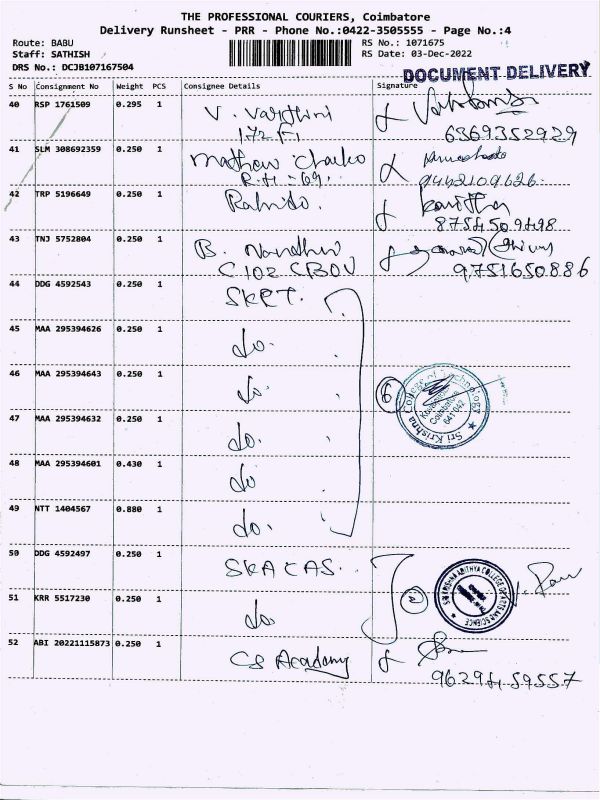 THE PROFESSIONAL COURIERS, Coimbatore
Delivery Runsheet - PRR - Phone No.:0422-3505555 - Page No.:4
Route: BABU
RS No.: 1071675
Staff: SATHISH
RS Date: 03-Dec-2022
DRS No.: DCJB107167504
DOCUMENT DELIVERY
S No Consignment No Weight PCS Consignee Details Signature
40 RSP 1761509 0.295 1 V. Varthini
172 F1 6369352929
41 SLM 308692359 0.250 1 Mathew Chacko
R.H - 69. 9442109626.
42 TRP 5196649 0.250 1 Kavitha
8754509498
43 TNJ 5752804 0.250 1 B. Nandhini
C102 CBOU 9751650886
44 DDG 4592543 0.250 1 SKCT.
45 MAA 295394626 0.250 1 do.
46 MAA 295394643 0.250 1 do. 6
Sri Krishna College of Technology
Coimbatore
641 042
47 MAA 295394632 0.250 1 do.
48 MAA 295394601 0.430 1 do
49 NTT 1404567 0.880 1 do.
50 DDG 4592497 0.250 1 SKACAS.
SRI KRISHNA ADITHYA COLLEGE OF ARTS AND SCIENCE
51 KRR 5517230 0.250 1 do 2
52 ABI 20221115873 0.250 1 CS Academy
9629459557